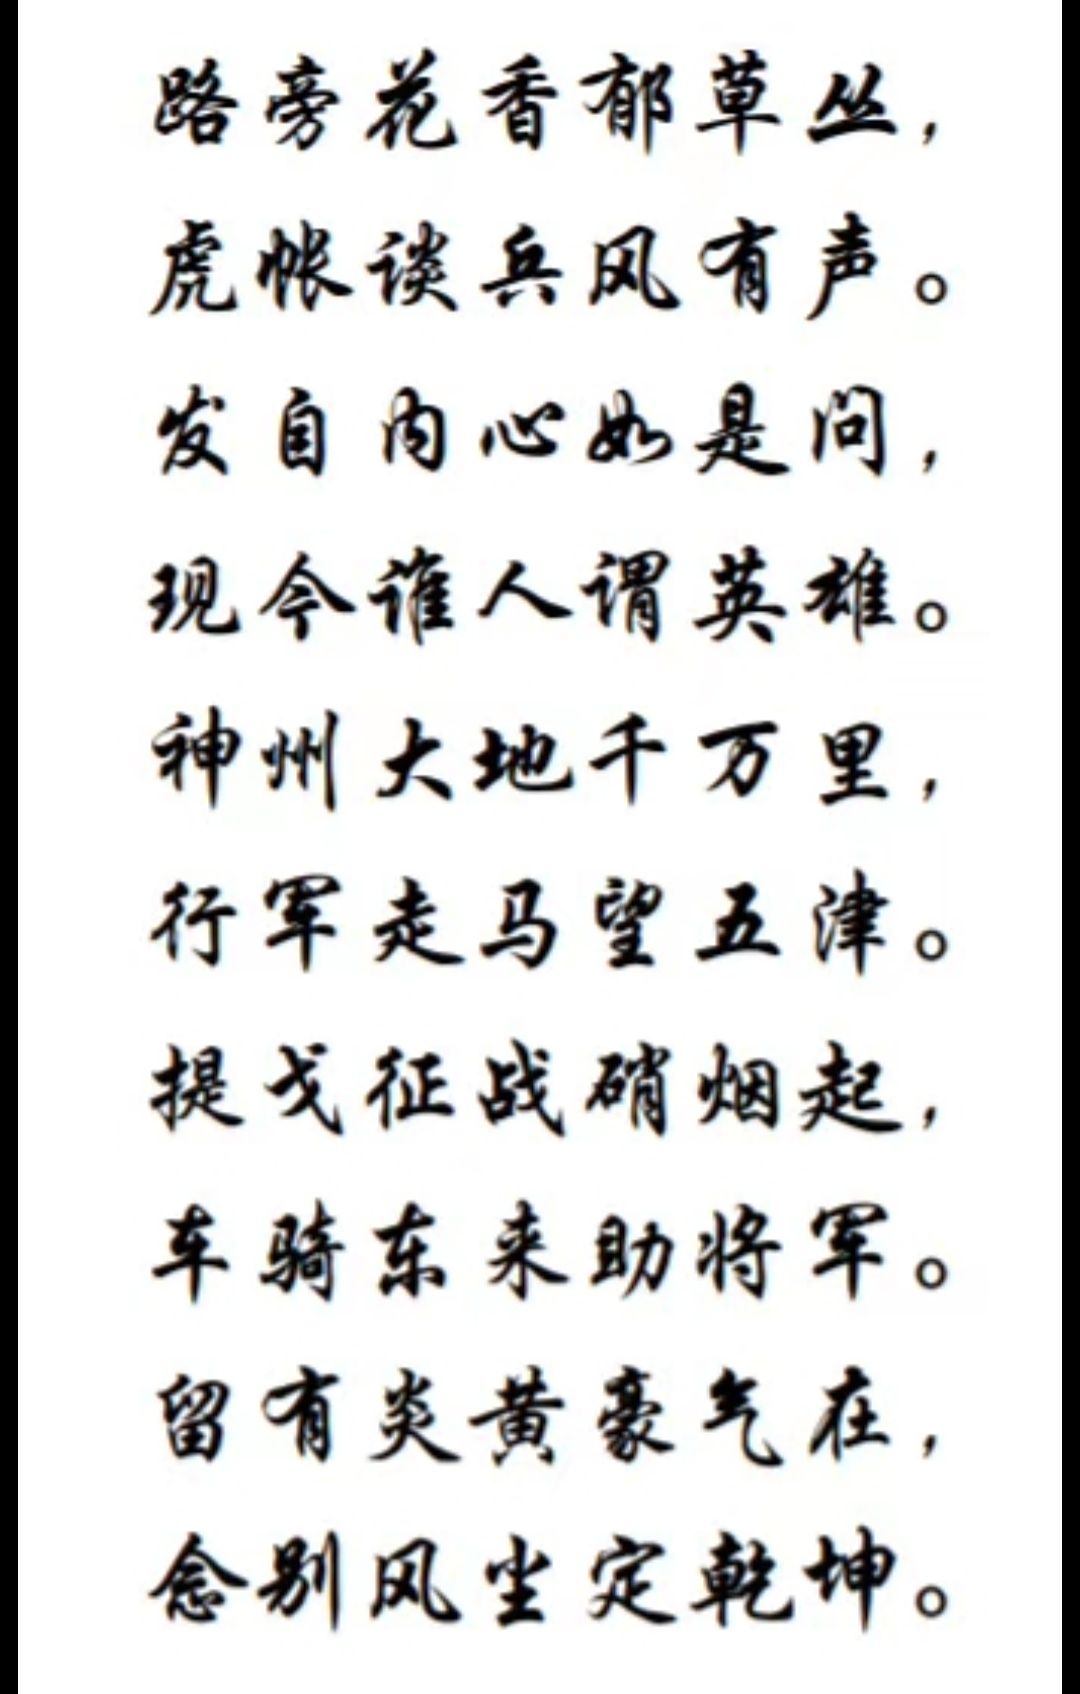 路旁花香郁草丛，
虎帐谈兵风有声。
发自内心如是问，
现今谁人谓英雄。
神州大地千万里，
行军走马望五津。
提戈征战硝烟起，
车骑东来助将军。
留有炎黄豪气在，
念别风尘定乾坤。